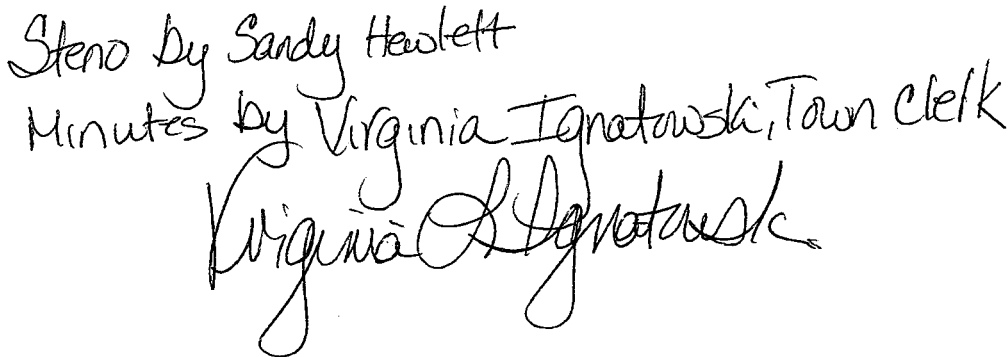 Steno by Sandy Hewlett
Minutes by Virginia Ignatowski, Town Clerk
Virginia L Ignatowski